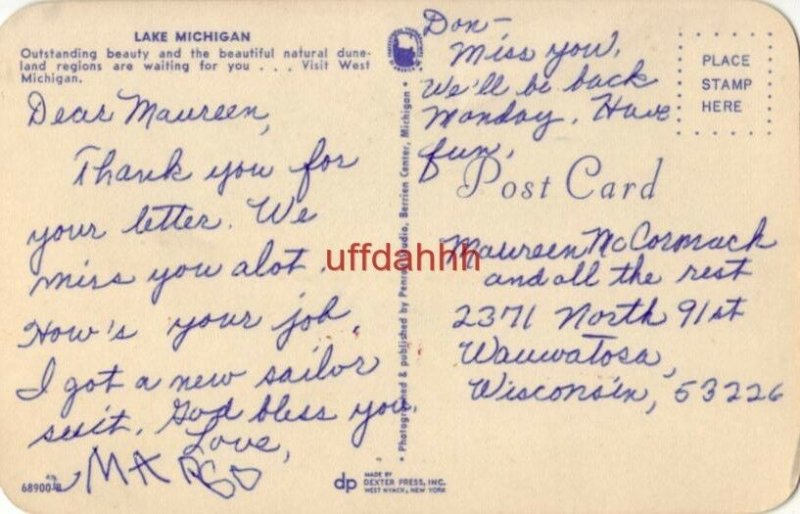 LAKE MICHIGAN
Outstanding beauty and the beautiful natural dune-
land regions are waiting for you . . . Visit West
Michigan.
Dear Maureen,
Thank you for
your letter. We
miss you alot.
How's your job.
I got a new sailor
suit. God bless you.
Love,
MARGO
68900-B
Photographed & published by Penrod Studio, Berrien Center, Michigan
dp
MADE BY
DEXTER PRESS, INC.
WEST NYACK, NEW YORK
Don-
Miss you.
We'll be back
Monday. Have
fun.
PLACE
STAMP
HERE
Post Card
Maureen McCormack
and all the rest
2371 North 91st
Wauwatosa,
Wisconsin, 53226
uffdahhh